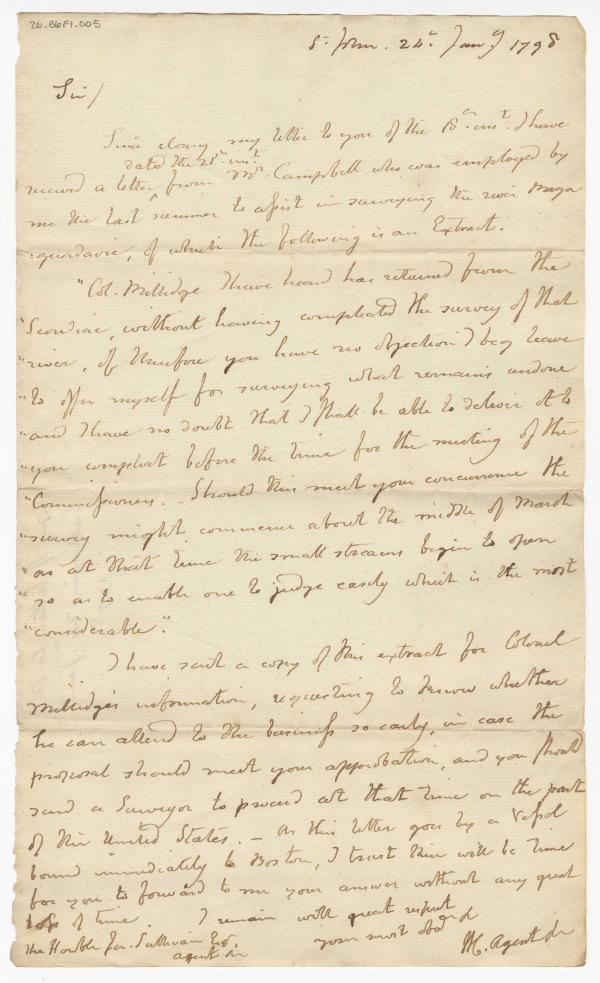 26-B6F1.005
St. John. 24th. Jany 1798
Sir/
Since closing my letter to you of the 18th. inst. I have
dated the 21st. inst.
received a letter ^ from Mr. Campbell who was employed by
me the last summer to assist in surveying the river Maga
:quadavic, of which the following is an Extract.
"Col. Millidge I have heard has returned from the
"Scoudiac, without having compleated the survey of that
"river, if therefore you have no objection I beg leave
"to offer myself for surveying what remains undone
"and I have no doubt that I shall be able to deliver it to
"you compleat before the time for the meeting of the
"Commissioners. – Should this meet your concurrence the
"survey might commence about the middle of March
"as at that time the small streams begin to open
"so as to enable one to judge easily which is the most
"considerable".
I have sent a copy of this extract for Colonel
Millidge's information, requesting to know whether
he can attend to the business so early, in case the
proposal should meet your approbation, and you should
send a Surveyor to proceed at that time on the part
of the United States. – As this letter goes by a Vessel
bound immediately to Boston, I trust there will be time
for you to forward to me your answer without any great
loss of time. I remain with great respect
your most obed
The Honble Jas. Sullivan Esqr.
agent &c
M. Agent &c